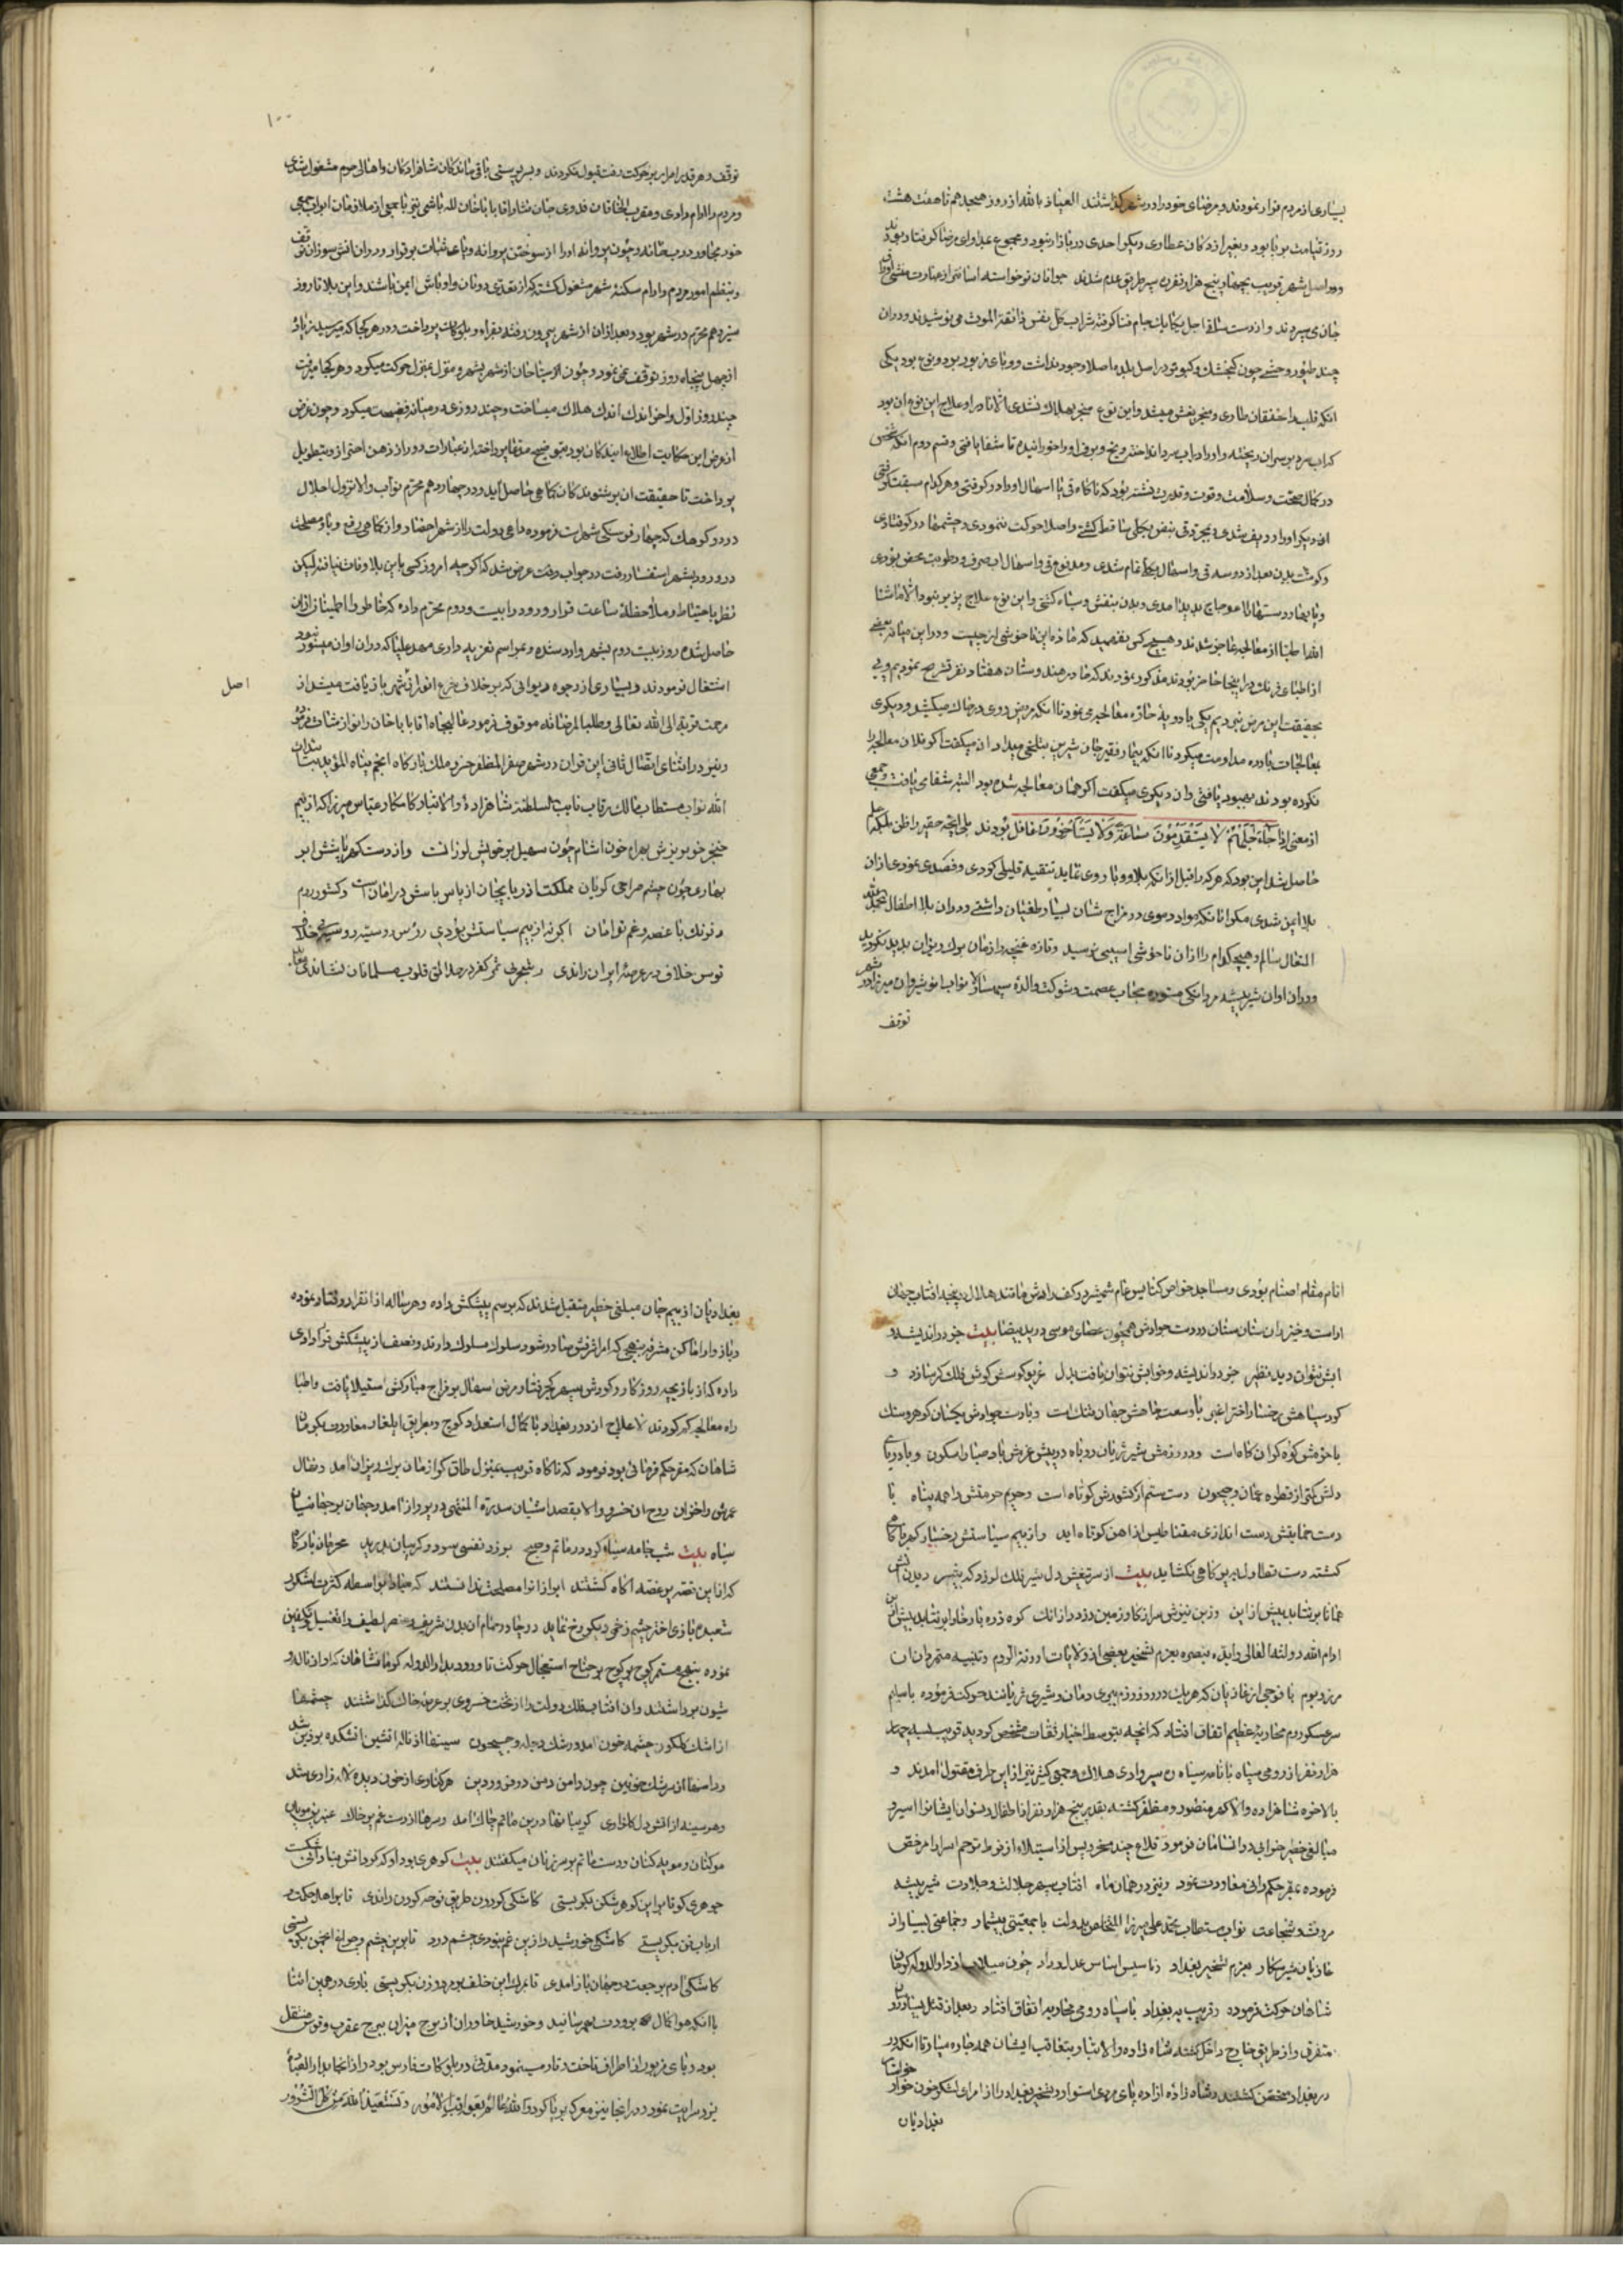 بسیاری از مردم فرار نمودند و مرضای خود را در شهر گذاشتند العیاذ بالله از روز هیجدهم تا هفت هشت
روز قیامت بر پا بود و بغیر از دکان عطاری دیگر احدی در بازار نبود و مجموع عبدا و ای مرضا گرفتار بودند
و در اصل شهر قریب بچهار پنج هزار نفر بسر طریق عدم شدند جوانان نوخواسته
جان می سپردند و از دست ساقی اجل یکایک جام فنا گرفته شراب کل نفس ذائقة الموت می نوشیدند و در آن
چند طیور وحشی چون گنجشک و کبوتر در اصل بلد اصلا وجود نداشت و وبای مزبور بر دو نوع بود یکی
آنکه قلب را خفقان طاری و منجر بغش میشد و این نوع منجر بهلاک نشدی الا نادرا و علاج این نوع آن بود
که آب سرد بر سر آن ریخته و او را در آب سرد انداختند و یخ و برف او را خورانیده تا شفا یافتی و قسم دوم آنکه شخص
در کمال صحت و سلامت و قوت و قدرت نشسته بود که ناگاه قی یا اسهال او را در گرفتی و هر کدام سبقت گرفتی
آن دیگر او را ردیف شدی و بمجرد قی نبض بکلی ساقط گشتی و اصلا حرکت ننمودی و چشمها در گو فتادی
و گوشت بدن بعد از دو سه قی و اسهال بکلی تمام شدی و مدفوع قی و اسهال آب صرف و رطوبت محض بودی
و پاها و دستها را اعوجاج پدید آمدی و بدن بنفش و سیاه گشتی و این نوع علاج پذیر نبود الا ماشا
الله اطبا از معالجه عاجز شدند و هیچ کس نفهمید که ماده این ناخوشی از چیست و در این میانه بعضی
از اطبای فرنگ در اینجا حاضر بودند مذکور نمودند که ما در هندوستان هفتاد نفر تشریح نمودیم و پی
بحقیقت این مرض نبردیم یکی بادویه حاره معالجه می نمود تا آنکه مریض روی در خاک میکشید و دیگری
بمعالجات بارده مداومت میکرد تا آنکه بیمار فقیر جان شیرین بتلخی میداد آن میگفت اگر فلان معالجه را
نکرده بودند بهبود یافتی و آن دیگری میگفت اگر همان معالجه شده بود البته شفا می یافت و جمعی
از معنی اذا جاء اجلهم لا یستقدمون ساعة ولا یستأخرون غافل بودند بلی آنچه حقیر را ظن بلکه علم
حاصل شد این بود که هر که را قبل از آنکه بلا و وبا روی نماید تنقیه قلیلی کردی و فصدی نمودی از آن
بلا ایمن شدی مگر آنانکه مواد دموی در مزاج شان بسیار طغیان داشتی و در آن بلا اطفال بحمد الله
المتعال سالم و هیچ کدام را از آن ناخوشی آسیبی نرسید و تازه غنچه را از آن برگ و بران پدید نگردید
و در آن اوان شیر بیشه مردانگی مستوره بحجاب عصمت و شوکت والده نواب انوشیروان میرزا در شهر
توقف
۱۰۰
توقف و هر قدر امرا بر حرکت رفت قبول نکردند و بسرپرستی باقی ماندگان شاهزادگان و اهالی حرم مشغول شدی
و مردم را آرام دادی و مقرب الخاقان فدوی جان نثار آقا بابا خان لله باشی نیز با جمعی از ملازمان ابواب جمعی
خود مجاور درب خانه و چون پروانه او را از سوختن پروا نه و پای ثبات برقرار و در آن آتش سوزان توقف
و بنظم امور مردم و آرام سکنه شهر مشغول گشته که از تعدی دونان و اوباش ایمن باشند و این بلا تا روز
سیزدهم محرم در شهر بود و بعد از آن از شهر بیرون رفته بقراء و بلوکات پرداخت و در هر کجا که میرسید زیاده
از چهل پنجاه روز توقف نمی نمود و چون از سیاحان از شهر بشهر و منزل بمنزل حرکت میکرد و هر کجا میرفت
چند روز اول و آخر اندک اندک هلاک میساخت و چند روزی در میانه فضیحت میکرد و چون غرض
از عرض این حکایت اطلاع آیندگان بود بتوضیح مدعا پرداخته از عبارات دور از ذهن احتراز و بتطویل
پرداخت تا حقیقت آن بر شنوندگان کماهی حاصل آید و در چهاردهم محرم نواب والا نزول اجلال
در دو کوهک که چهار فرسنگی شهر است فرموده داعی دولت را از شهر احضار و از کماهی رفع وبا و مصلحت
در ورود بشهر استفسار رفت در جواب دعت عرض شد که اگر چه امروز کسی باین بلا وفات نیافته لیکن
نظر باحتیاط و ملاحظه ساعت قرار ورود را بیست و دوم محرم داده که خاطر را اطمینان از آن
حاصل شده روز بیست دوم بشهر وارد شده و بمراسم تعزیه داری مهد علیا که در آن اوان میسر نبود
اشتغال فرمودند و بسیاری از وجوه دیوانی که بر خلاف شرع انور از شهر بازیافت میشد از
اصل
مرحمت قربة الی الله تعالی و طلبا لمرضاته موقوف فرمود عالیجاه آقا بابا خان را نوازشات فرمود
و نیز در اثنای اتصال ثانی این قران در شهر صفر المظفر خبر و ملک بارگاه انجم پناه المؤید بتأییدات
الله نواب مستطاب مالک رقاب نایب السلطنه شاهزاده والاتبار کامکار عباس میرزا که از بیم
خنجر خونریزش بهرام خون آشام چون سهیل بر خویش لرزانست و از دست گهر پاشش ابر
بهاری چون چشم صراحی گریان مملکت آذربایجان از پاس باسش در امان است و کشور روم
و فرنگ با غصه و غم توامان اگر نه از بیم سیاستش بودی روس روسیه رو سیهی خلاف
توس خلاف در عرصه ایران راندی و شجری ثمر کفر در حدائق قلوب مسلمانان نشاندی
انام مقام اصنام بودی و مساجد خواص کنایس عام شمشیر در کف رادش مانند هلال در پنجه آفتاب جهان
آراست و خیزران سنان ستان در دست جوادش همچون عصای موسی در ید بیضا بیت خرد راندیشد و
آتش نتوان دید نظیر خرد راندیشه و خوابش نتوان یافت بدل غریو کوسش گوش فلک کر سازد و
گرد سپاهش رخسار اختر اغبر با وسعت جاهش جهان تنگ است و با دست جوادش یکسان گوهر و سنگ
با حزمش کوه گران کاه است و در رزمش شیر ژیان روباه در پیش عزمش باد صبا را سکون و با دریای
دلش کمتر از قطره عمان و جیحون دست ستم از کشورش کوتاه است و حریم حرمتش را همه پناه با
دست حمایتش دست اندازی مقناطیس از آهن کوتاه آید و از بیم سیاستش رخسار کهربا کاهی
گشته دست تطاول بر پر کاهی نگشاید بیت از سر تیغش دل شیر فلک لرزد که بتپسر دیدنش
همانا بر نتابد بیش از این وز پی تیزش سر از گاو زمین دزدد از آنک کوه ذره با رخار ابر نتابد بیش از این
ادام الله دولته العالی و ایده بنصره بعزم تسخیر بعضی از ولایات ارزنة الروم و تنبیه متمردان آن
مرز و بوم با فوجی از غازیان که هر یک در روز رزم ببری دمان و شیری غریانند حرکت فرموده با سپاه
سرعسکر روم محاربه عظیم اتفاق افتاد که آنچه بتوسط اخبار ثقات مشخص گردید قریب بسه چهار
هزار نفر از رومی سپاه با نامه سیاه ره سپر وادی هلاک و جمعی کثیر نیز از این طرف مقتول آمدند و
بالاخره شاهزاده والاگهر منصور و مظفر گشته بقدر پنج هزار نفر از اطفال و نسوان ایشان را اسیر و
مبالغی خطیر خرابی در آن سامان فرمود قلاع چند مسخر و پس از استیلاء از فرط ترحم اسرا را مرخص
فرموده بمقر حکمرانی معاودت نمود و نیز در همان ماه آفتاب سپهر جلالت و جلادت شیر بیشه
مردی و شجاعت نواب مستطاب محمد علی میرزا المتخلص بدولت با جمعیتی بیشمار و جماعتی بسیار از
غازیان شیر شکار بعزم تسخیر بغداد و تاسیس اساس عدل و داد چون سیلاب از دار الدوله کرمان
شاهان حرکت فرموده و قریب به بغداد با سپاه رومی محاربه اتفاق افتاد و بعد از قتل بسیار رو
متفرق و از طریق خارج داخل گشته شاهزاده والاتبار بتعاقب ایشان همه جا ره سپار تا آنکه در
در بغداد متحصن گشتند و شاهزاده آزاده پای مردی استوار و تسخیر بغداد را از امرای لشکر خون خوار خواستار
بغدادیان
بغدادیان از بیم جان مبلغی خطیر متقبل شدند که برسم پیشکش داده و هر ساله از آنقرار رفتار نموده
و با زوار اماکن مشرفه بنهجی که امر اشرفش صادر شود سلوک مسلوک دارند و نصف از پیشکش قراردادی
داده که از بازیچه روزگار و گردش سپهر کجرفتار مرض اسهال بر مزاج مبارکش استیلا یافت و اطبا
راه معالجه گم کردند لاعلاج از دور بغداد با کمال استعداد کوچ و بطریق ایلغار معاودت بکرمان
شاهان که مقر حکمرانی بود فرمود که ناگاه قریب بمنزل طاق گرا از آن برگ و بران آمد و نهال
عمرش را خزان روح آن خسرو والا بقصد آشیان سدرة المنتهی در پرواز آمد و جهان بر جهانیان
سیاه بیت شب جامه سیاه کرد در ماتم و صبح بر زد نفسی سرد و گریبان بدرید محرمان بارگاه
که از این قصه پر غصه آگاه گشتند ابراز آنرا مصلحت ندانستند که مبادا بواسطه کثرت لشکر
شعبده بازی اختر چشم زخمی دیگر رخ نماید در چادر حمام آن بدن شریف و عنصر لطیف را تغسیل و تکفین
نموده بنهج مستمر کوچ بر کوچ بر جناح استعجال حرکت تا ورود بدار الدوله کرمانشاهان که آواز ناله و
شیون برداشتند و آن آفتاب فلک دولت را از تخت خسروی بر عرصه خاک گذاشتند چشمها
از اشک گلگون چشمه خون آمد و رشک دجله و جیحون سینها از ناله آتشین آتشکده برزین شد
و دامنها از سرشک خونین چون دامن دمن در فروردین هر کناری از خون دیده لاله زاری شد
و هر سینه از آتش دل کانونی گریبانها در این ماتم چاک آمد و سرها از دست غم بر خاک عنبرین مویان
موکنان و مویه کنان و دست ماتم بر سر زنان میگفتند بیت گوهری بود او که گردانش بنادانی شکست
جوهری کو تا بر این گوهر شکن بگریستی کاشکی گردون طریق نوحه کردن راندی تا بر اهل حکمت و
ارباب فن بگریستی کاشکی خورشید را زین غم نبودی چشم درد تا برین چشم و چراغ انجمن بگریستی
کاشکی آدم برجعت در جهان باز آمدی تا بمرگ این خلف بر مرد و زن بگریستی باری در همین اثنا
باآنکه هوا کمال برودت بهم رسانید و خورشید خاوران از برج میزان ببرج عقرب و قوس منتقل
بود وبای مزبور از اطراف تاخت و تاز مینمود مدتی در بلوکات فارس بود و از آنجا بدار العباد
یزد سرایت نمود و در آنجا نیز معرکه بر پا کرد و الله عالم بعواقب الامور و نستعیذ بالله من کل الشرور